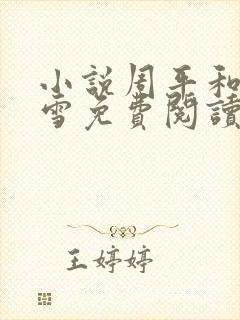 小說周平和
雪免費閱讀
王婷婷